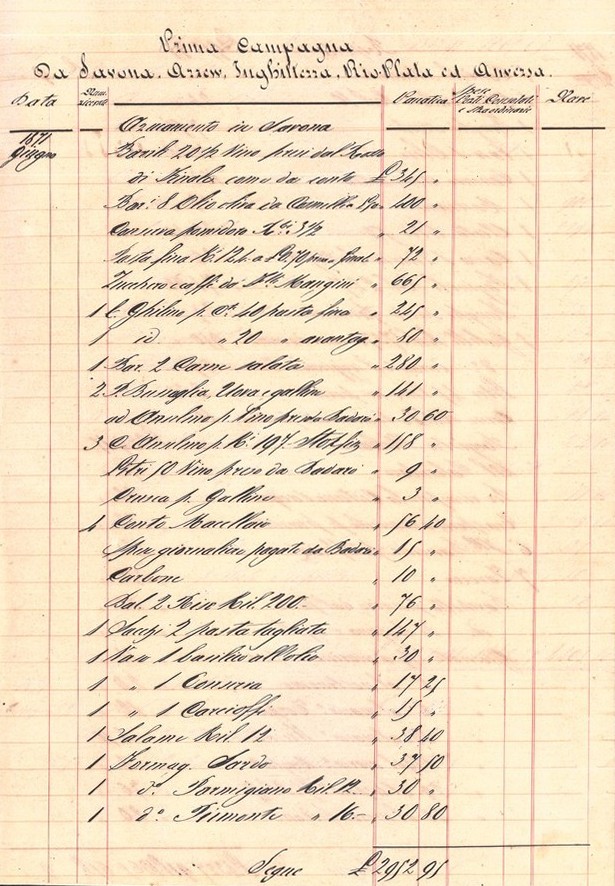 Prima Campagna
Da Savona. Arzew. Inghilterra. Rio Plata ed Anversa.
Data Panatica Spese Porti Consolati e Straordinarie Nave
Armamento in Savona
1871 Giugno Barili 20 1/2 Vino presi dal
di come da conto £ 345 "
Bar. 8 Olio oliva da 400 "
Conserva pomidoro 3 1/2 " 21 "
Pasta fina K. 124 a £ 0.70 " 72 "
Zucchero e caffè da Mangini " 665 "
1 C. Ghilino p. 40 pasta fina " 245 "
1 id " 20 " " 80 "
1 Bar. 2 Carne salata " 280 "
2 P. Uova e galline " 141 "
ad Anselmo p. Vino preso da Badarò " 30 60
3 C. Anselmo p. K. 197. Stokfis " 158 "
Litri 50 Vino preso da Badarò " 9 "
Crusca p. Galline " 3 "
4 Conto Macellaio " 56 40
Spese giornaliere pagate da Badarò " 15 "
Carbone " 10 "
Bal. 2 Riso Kil. 200.- " 76 "
1 Sacchi 2 pasta tagliata " 147 "
1 Vaso 1 basilico all'olio " 30 "
1 " 1 Conserva " 17 25
1 " 1 Carcioffi " 15 "
1 Salame Kil 12 " 38 40
1 Formag. Sardo " 37 50
1 d.º Parmigiano Kil. 12 " 30 "
1 d.º Piemonte " 16.- " 30 80
Segue £ 2952 95